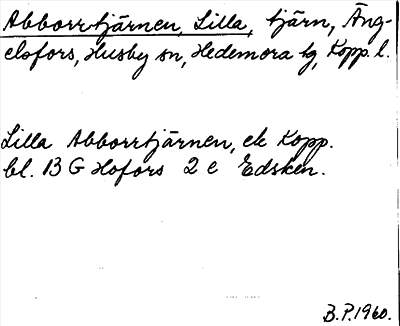 Abborrtjärnen, Lilla, tjärn, Äng-
elsfors, Husby sn, Hedemora tg, Kopp. l.
Lilla Abborrtjärnen, ek Kopp.
bl. 13 G Hofors 2 e Edsken.
B.P. 1960.